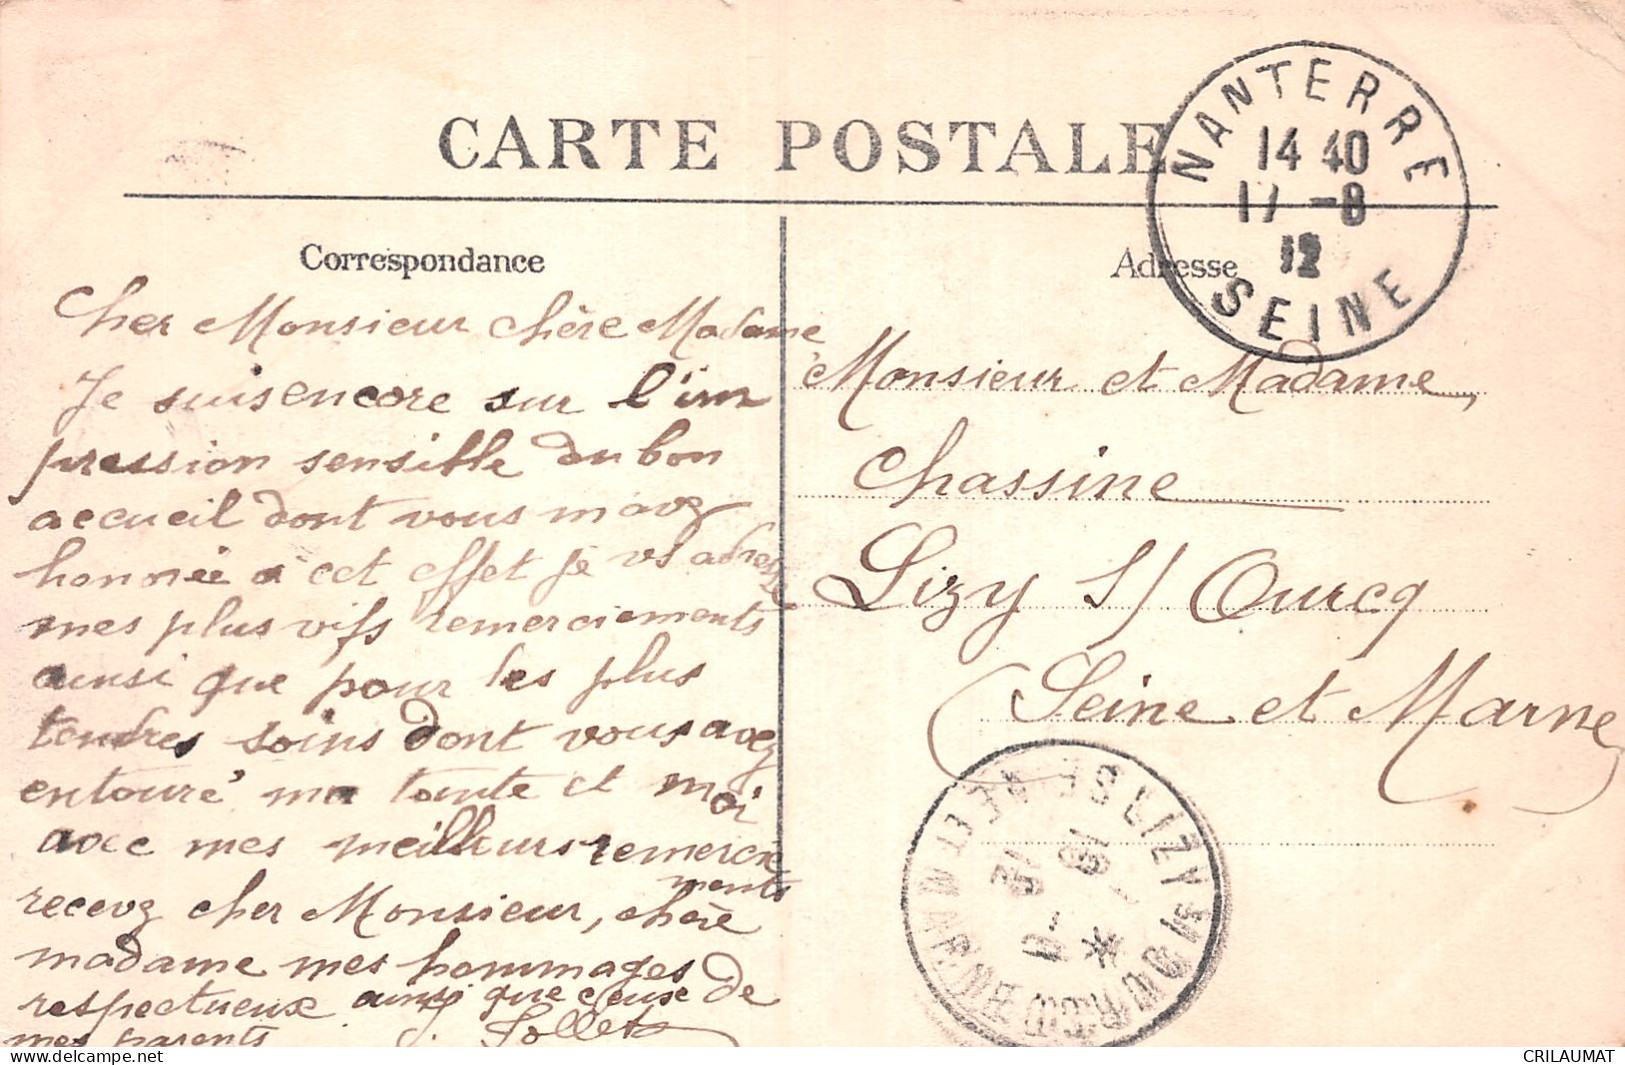 CARTE POSTALE
NANTERRE
14 40
17 -8
12
SEINE
Correspondance
Adresse
Cher Monsieur chère Madame
Je suis encore sur l'im
pression sensible du bon
accueil dont vous m'avez
honnée à cet effet je vs adresse
mes plus vifs remerciements
ainsi que pour les plus
tendres soins dont vous avez
entouré ma tante et moi
avec mes meilleurs remercie
ments
recevez cher Monsieur, chère
madame mes hommages
respectueux ainsi que ceux de
mes parents J. Sollets
Monsieur et Madame,
Chassine
Lizy S/ Ourcq
Seine et Marne
LIZY
CRILAUMAT